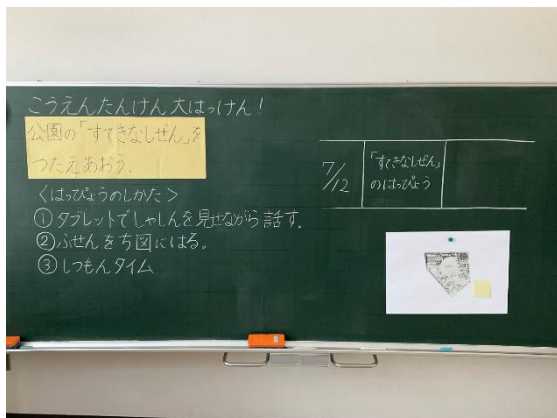 こうえんたんけん大はっけん!
公園の「すてきなしぜん」を
つたえあおう。
<はっぴょうのしかた>
①タブレットでしゃしんを見せながら話す。
②ふせんをち図にはる。
③しつもんタイム
7/12
「すてきなしぜん」
のはっぴょう